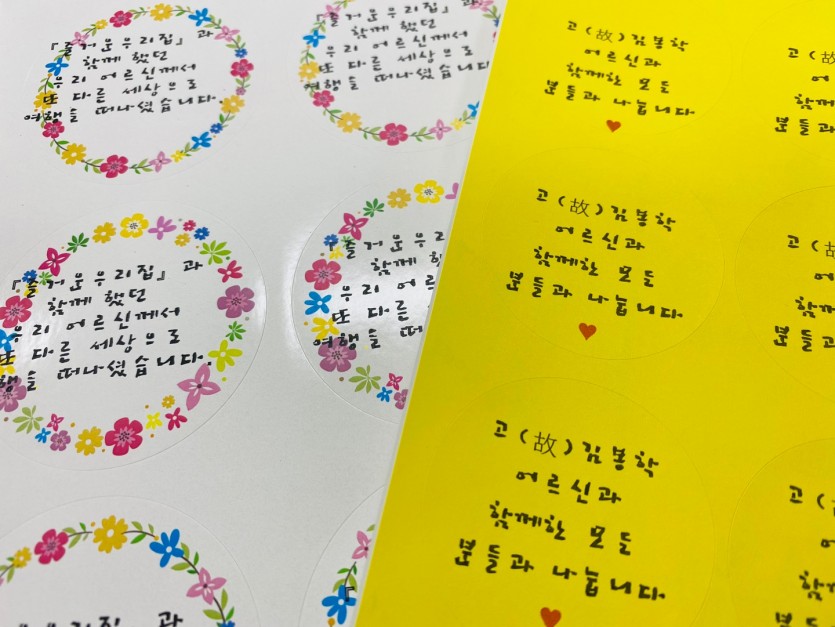 『즐거운우리집』과
함께 했던
우리 어르신께서
또 다른 세상으로
여행을 떠나셨습니다.
『즐거운우리집』과
함께 했던
우리 어르신께서
또 다른 세상으로
여행을 떠나셨습니다
『즐거운우리집』과
함께 했던
우리 어르신께서
또 다른 세상으로
여행을 떠나셨습니다.
『즐거운우리
함께
우리 어르
또 다른
여행을 떠
우리집』과
『
고(故)김봉학
어르신과
함께한 모든
분들과 나눕니다
고(故)김봉학
어르신과
함께한 모든
분들과 나눕니다
고(故)김봉학
어르신과
함께한 모든
분들과 나눕니다
고(故
어
함께
분들과
고(故
어
함께
분들과
고(故
어
함께
분들